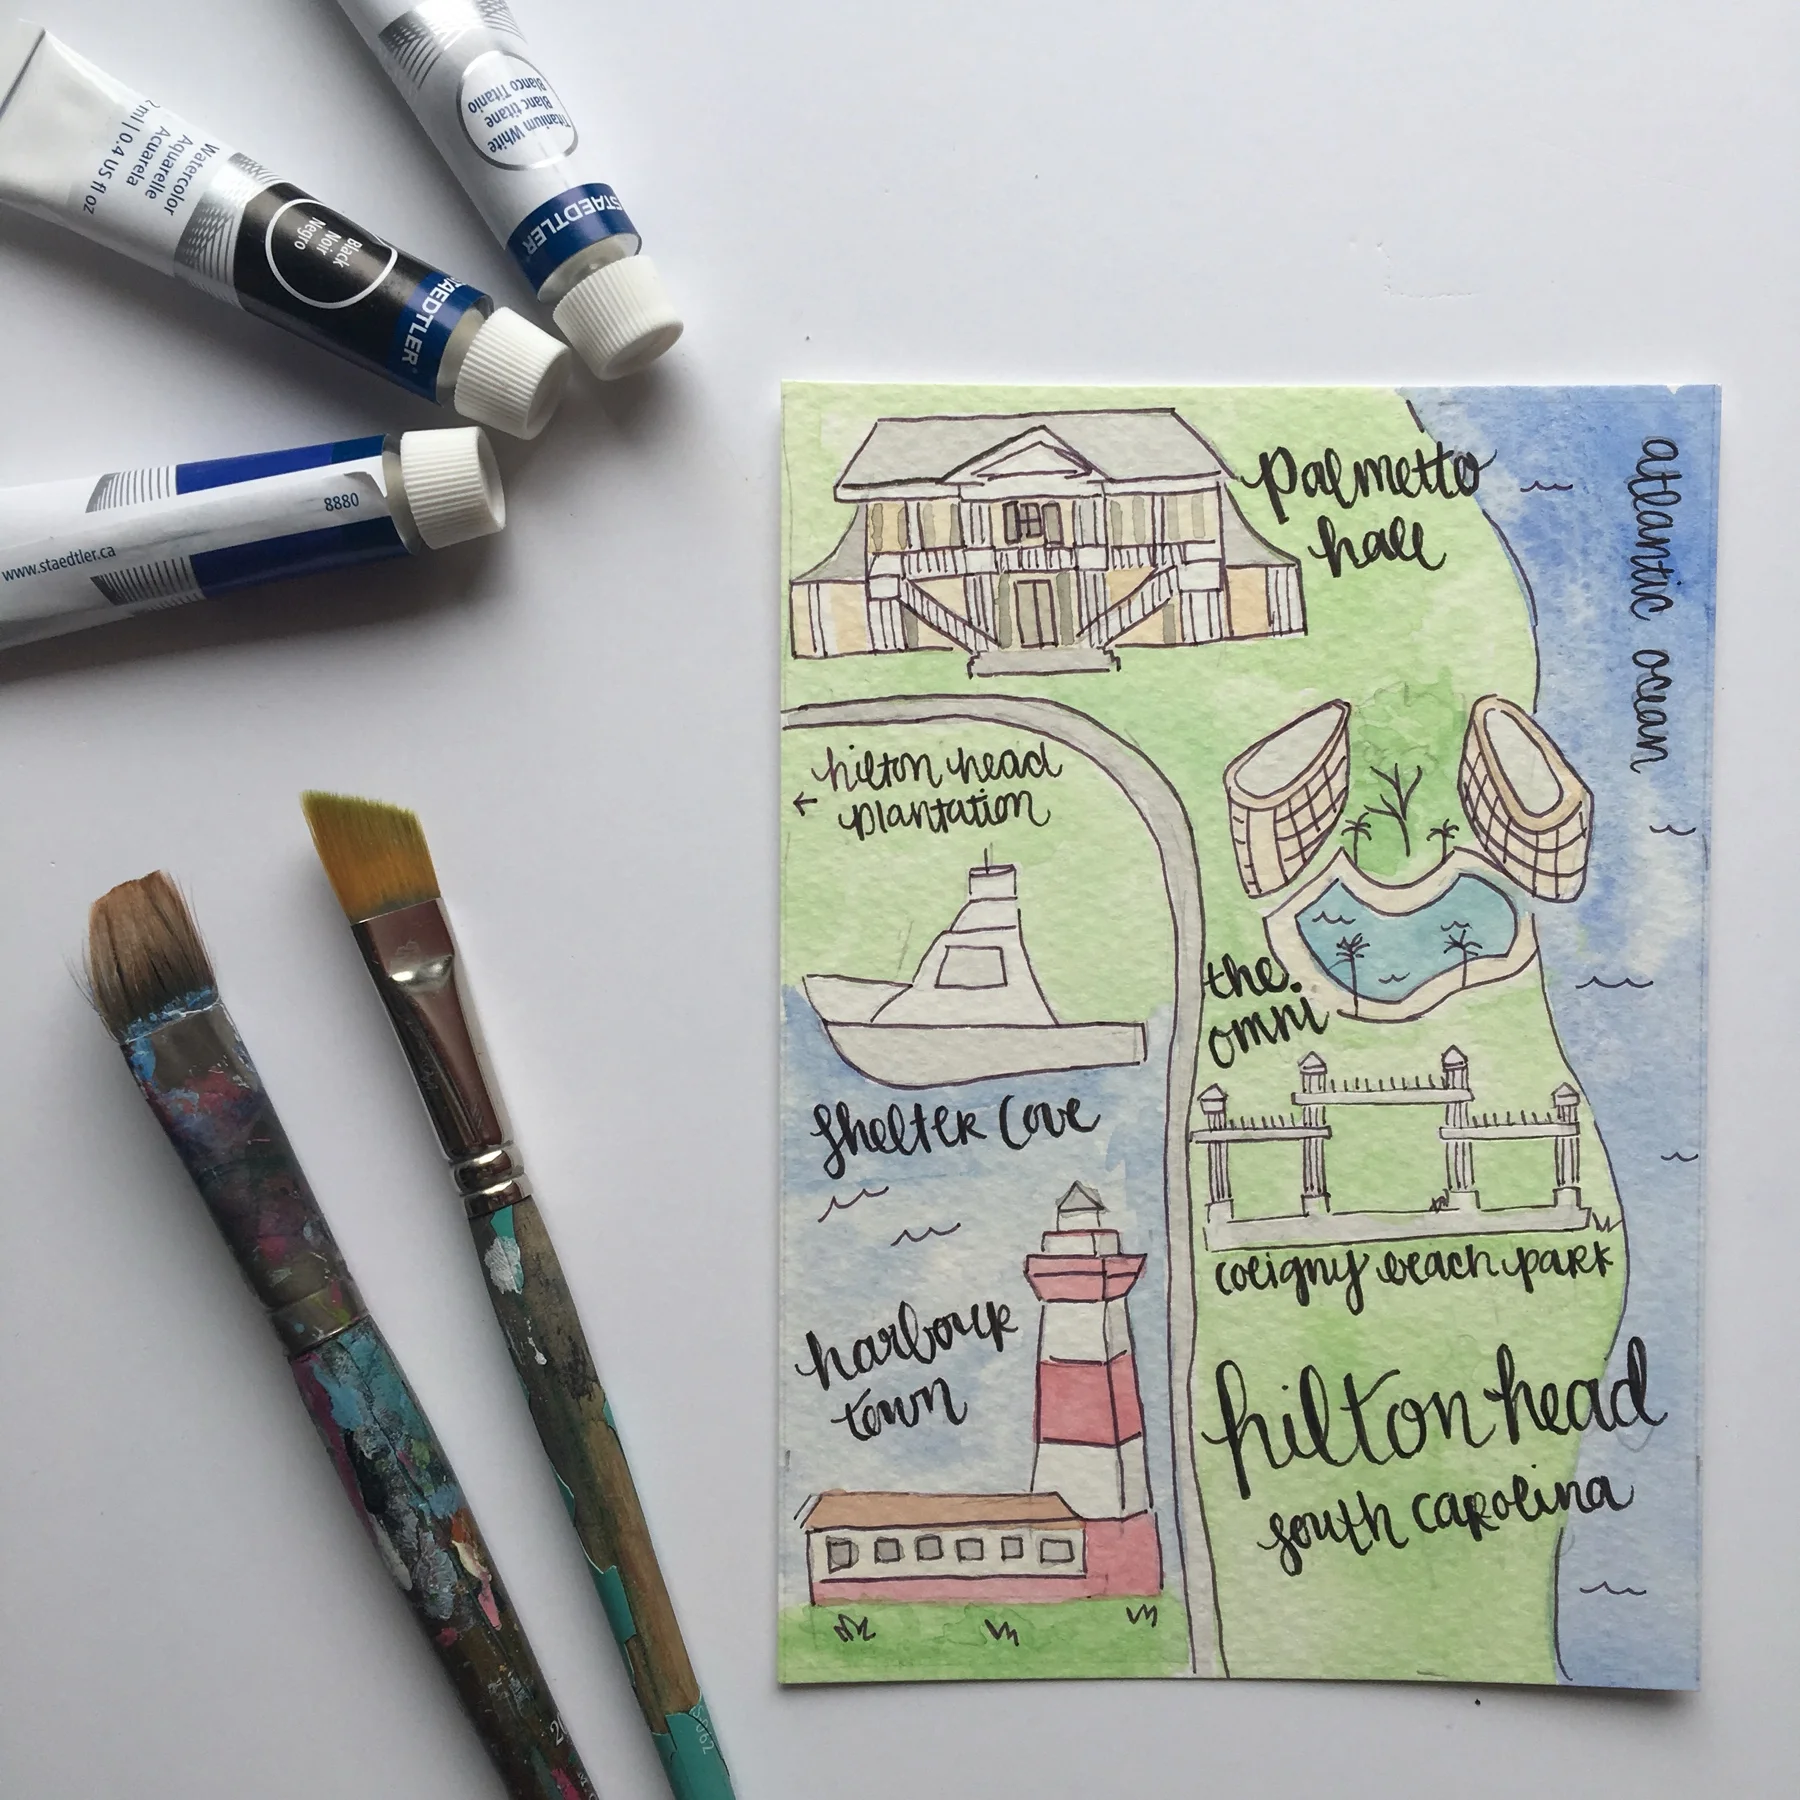 Titanium White
Blanc titane
Blanco Titanio
STAEDTLER
Watercolor
Aquarelle
Acuarela
2 ml | 0.4 US fl oz
Black
Noir
Negro
STAEDTLER
8880
www.staedtler.ca
palmetto
hall
atlantic ocean
hilton head
← plantation
the
omni
shelter cove
coligny beach park
harbour
town
hilton head
south carolina